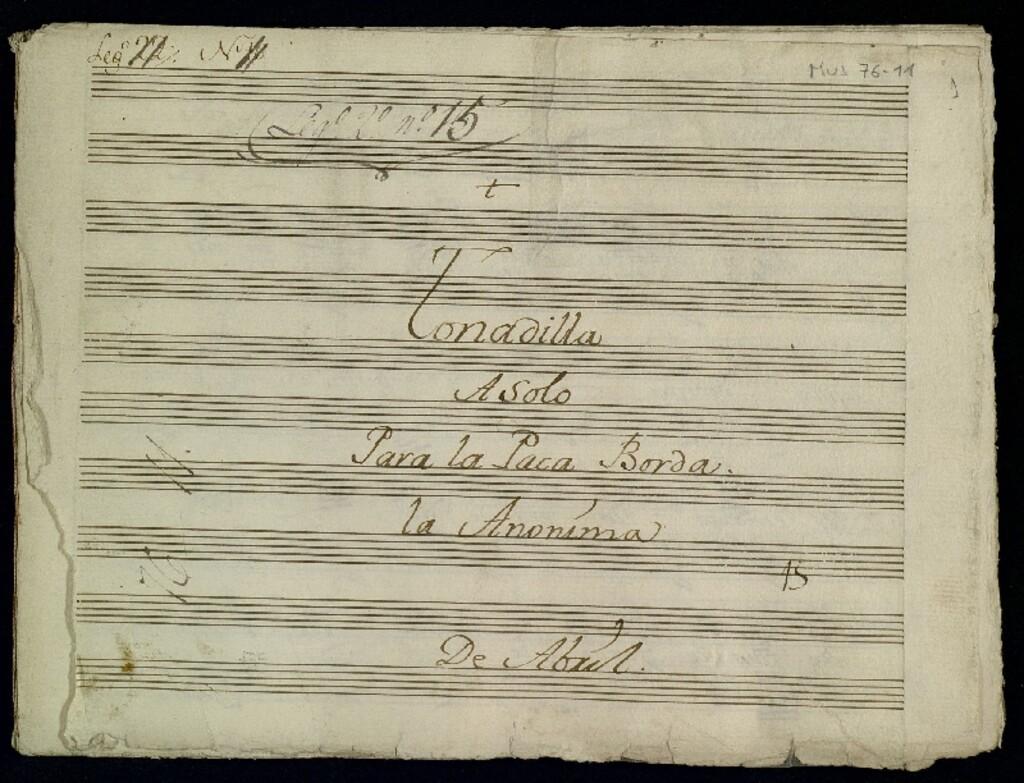 Legº 22. N. 11
Mus 76-11
1
Legº 2º nº 15
Tonadilla
A Solo
Para la Paca Borda.
la Anonima
15
De Abril.